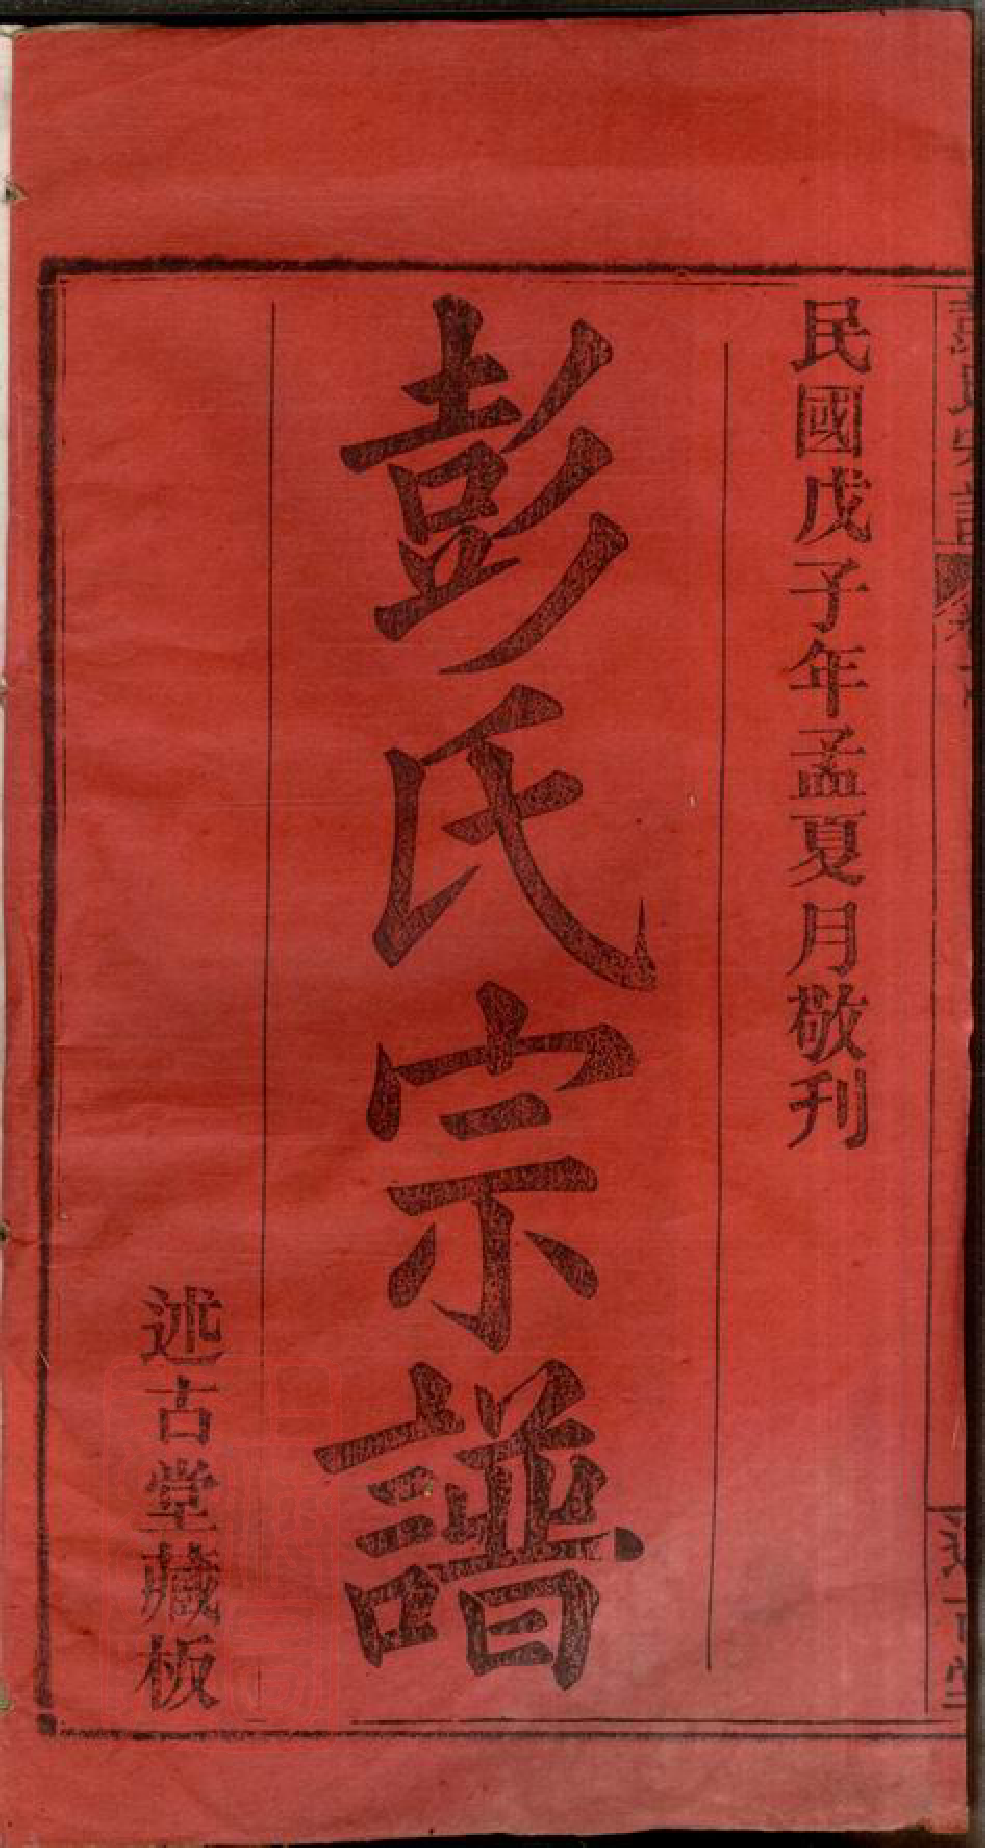 民國戊子年孟夏月敬刊
彭氏宗譜
述古堂藏板